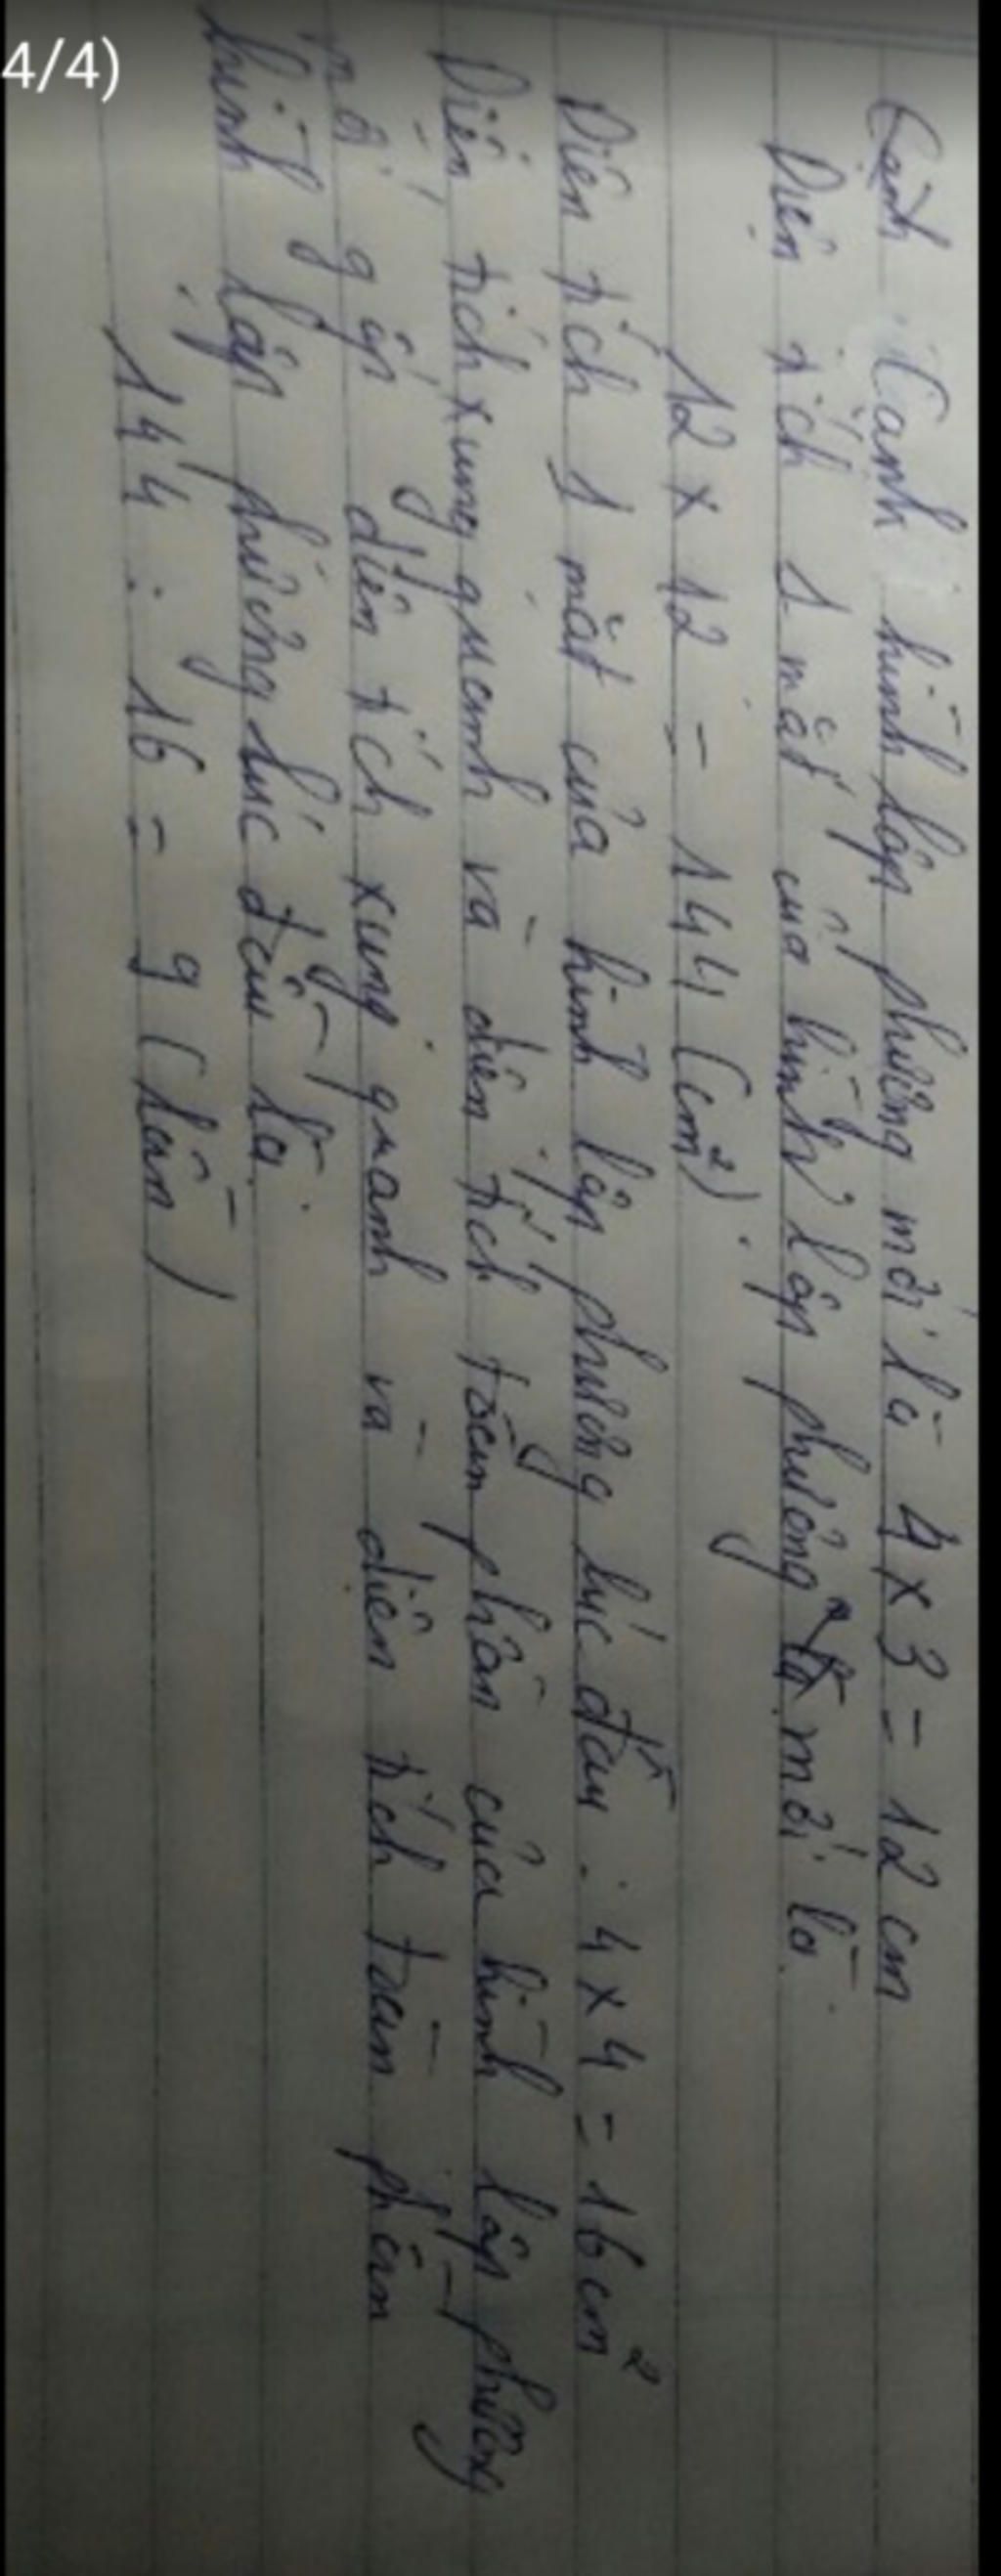 Cạnh hình lập phương mới là 4 x 3 = 12 cm
Diện tích 1 mặt của hình lập phương mới là
12 x 12 = 144 (cm²).
Diện tích 1 mặt của hình lập phương lúc đầu : 4 x 4 = 16 cm²
Diện tích xung quanh và diện tích toàn phần của hình lập phương
mới gấp diện tích xung quanh và diện tích toàn phần
hình lập phương lúc đầu là.
144 : 16 = 9 (lần)
4/4)